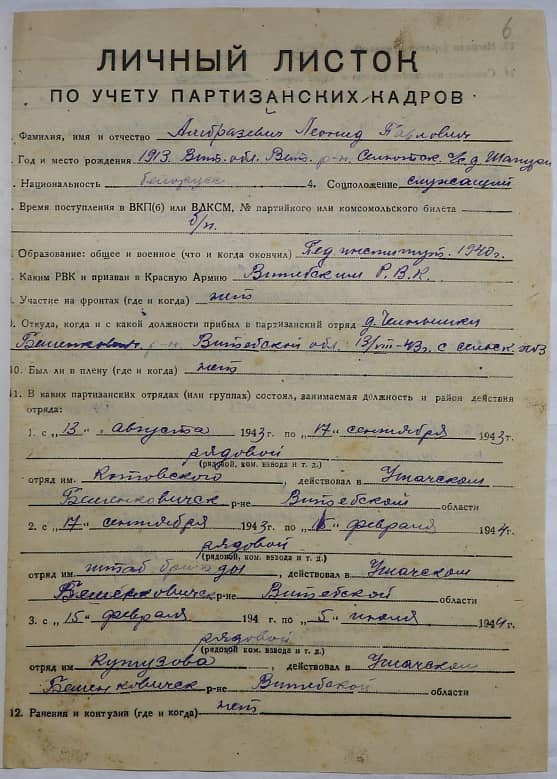 6
ЛИЧНЫЙ ЛИСТОК
ПО УЧЕТУ ПАРТИЗАНСКИХ КАДРОВ
. Фамилия, имя и отчество Леонид Павлович
. Год и место рождения 1913. Вит. обл. Вит. р-н.
. Национальность 4. Соцположение служащий
. Время поступления в ВКП(б) или ВЛКСМ, № партийного или комсомольского билета
б/п.
. Образование: общее и военное (что и когда окончил) Пед институт. 1940г.
. Каким РВК и призван в Красную Армию Витебским Р.В.К.
. Участие на фронтах (где и когда) нет
. Откуда, когда и с какой должности прибыл в партизанский отряд д.
р-н. Витебской обл. 13/VIII-43г. с
10. Был ли в плену (где и когда) нет
11. В каких партизанских отрядах (или группах) состоял, занимаемая должность и район действия
отряда:
1. с „13" августа 1943г. по „17" сентября 1943г.
рядовой
(рядовой, ком. взвода и т. д.)
отряд им. Котовского, действовал в Ушачском
Бешенковичск р-не Витебской области
2. с „17" сентября 1943г. по „ " февраля 1944г.
рядовой
(рядовой, ком. взвода и т. д.)
отряд им. штаб бригады, действовал в Ушачском
Бешенковичск р-не Витебской области
3. с „15" февраля 194 г. по „5" июля 1944г.
рядовой
(рядовой, ком. взвода и т. д.)
отряд им. Кутузова, действовал в Ушачском
Бешенковичск р-не Витебской области
12. Ранения и контузии (где и когда) нет